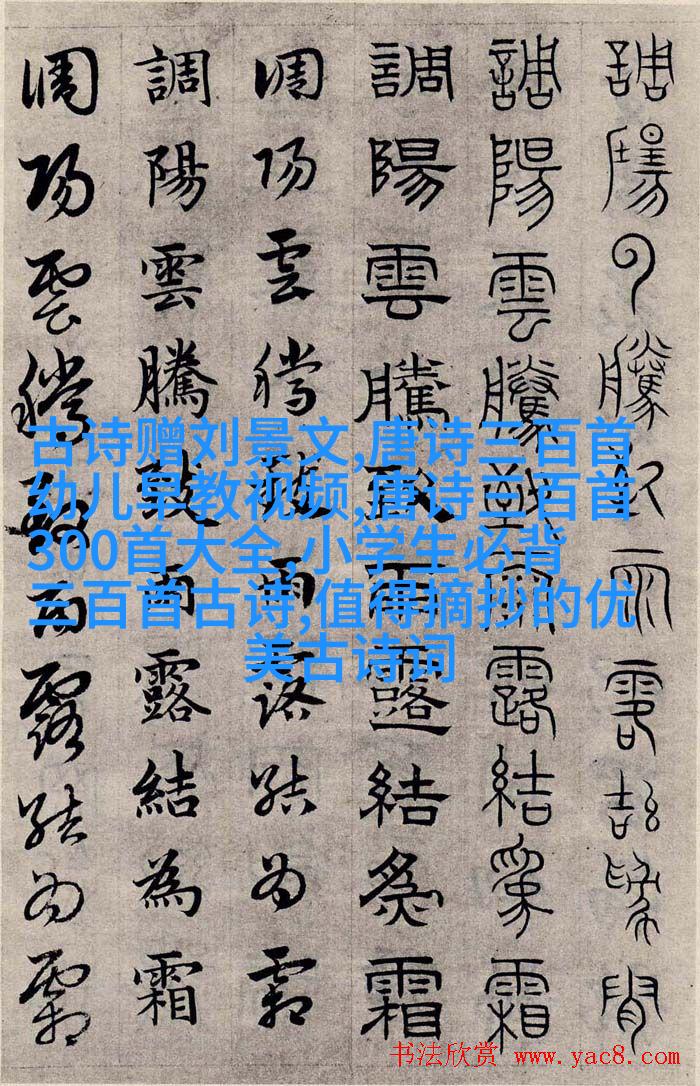 調陽雲騰致雨露結為霜
調陽雲騰致雨露結為霜
調陽雲騰致雨露結為霜
調陽雲騰致雨露結為霜
調陽雲騰致雨露結為霜
調陽雲騰致雨露結為霜
古诗赠刘景文,唐诗三百首
幼儿早教视频,唐诗三百首
300首大全,小学生必背
三百首古诗,值得摘抄的优
美古诗词
书法欣赏 www.yac8.com